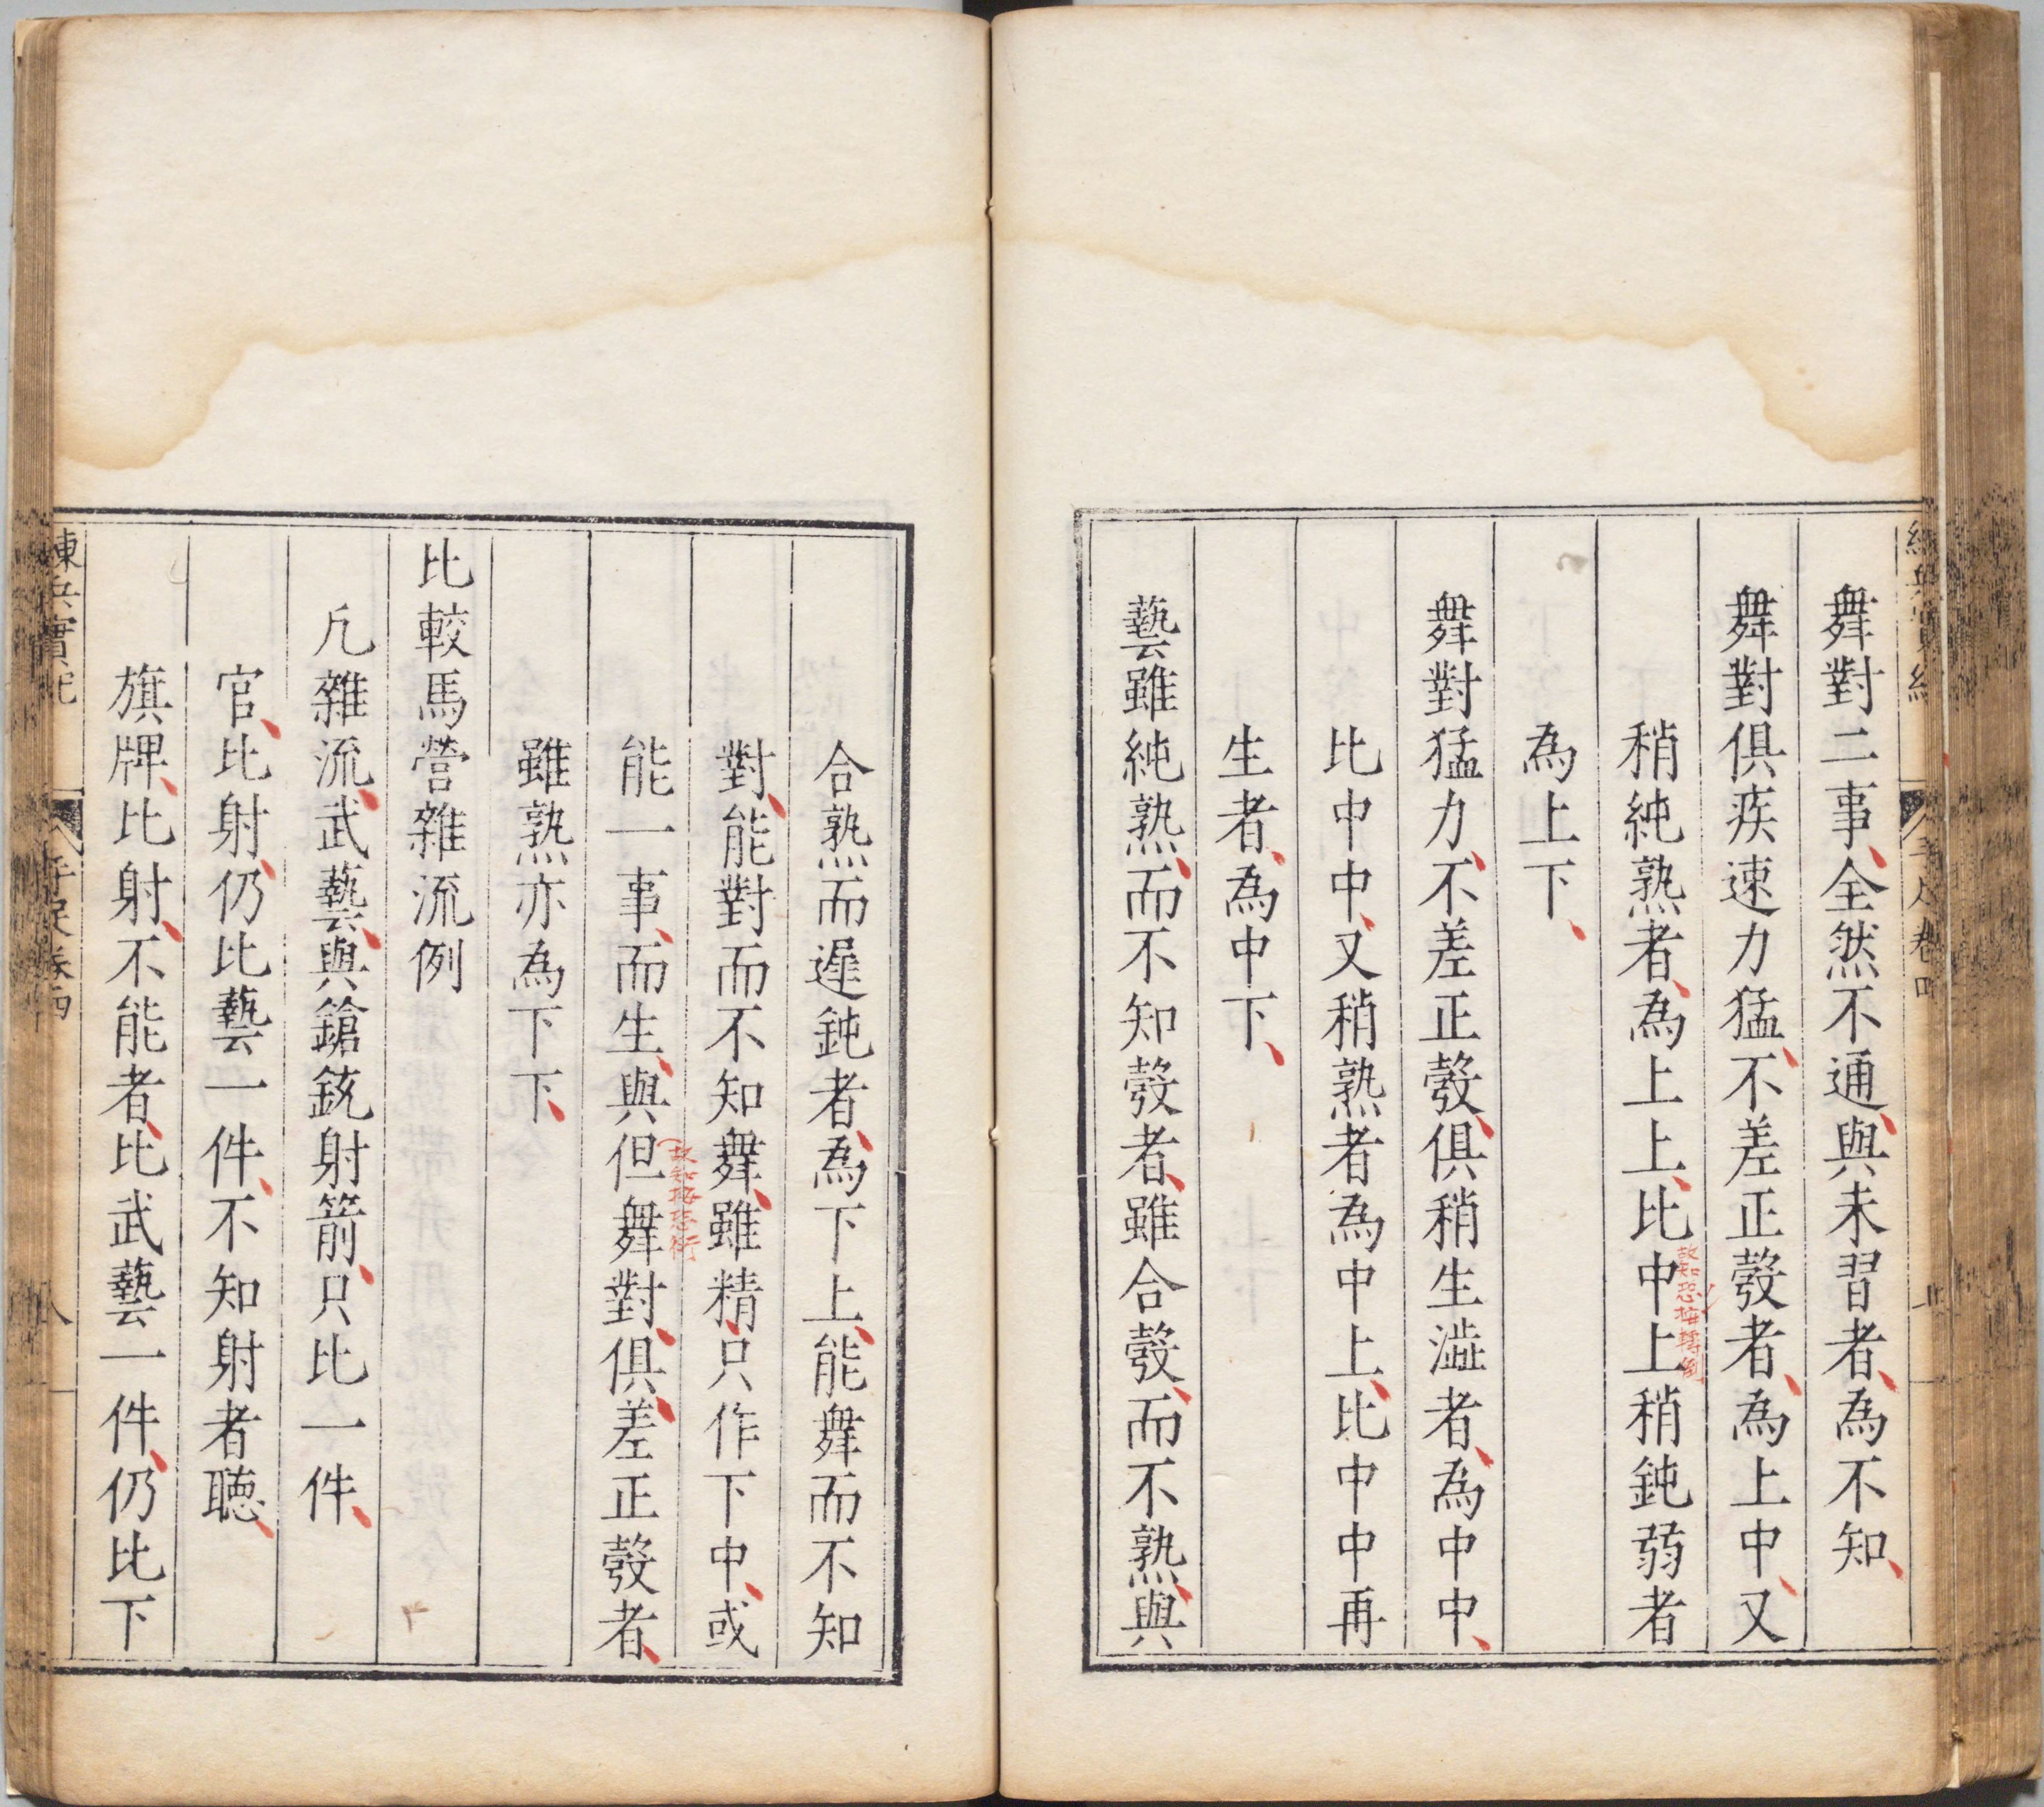 舞對二事、全然不通、與未習者、為不知、
舞對俱疾速力猛、不差正彀者、為上中、又
稍純熟者、為上上、比中上稍鈍弱者
為上下、
舞對猛力、不差正彀、俱稍生澁者、為中中、
比中中、又稍熟者為中上、比中中再
生者、為中下、
藝雖純熟、而不知彀者、雖合彀、而不熟、與
合熟而遲鈍者、為下上、能舞而不知
對、能對而不知舞、雖精、只作下中、或
能一事、而生、與但舞對、俱差正彀者、
雖熟亦為下下、
比較馬營雜流例
凢雜流、武藝、與鎗銃射箭、只比一件、
官、比射、仍比藝一件、不知射者聽、
旗牌、比射、不能者、比武藝一件、仍比下
練兵實紀
卷四
八